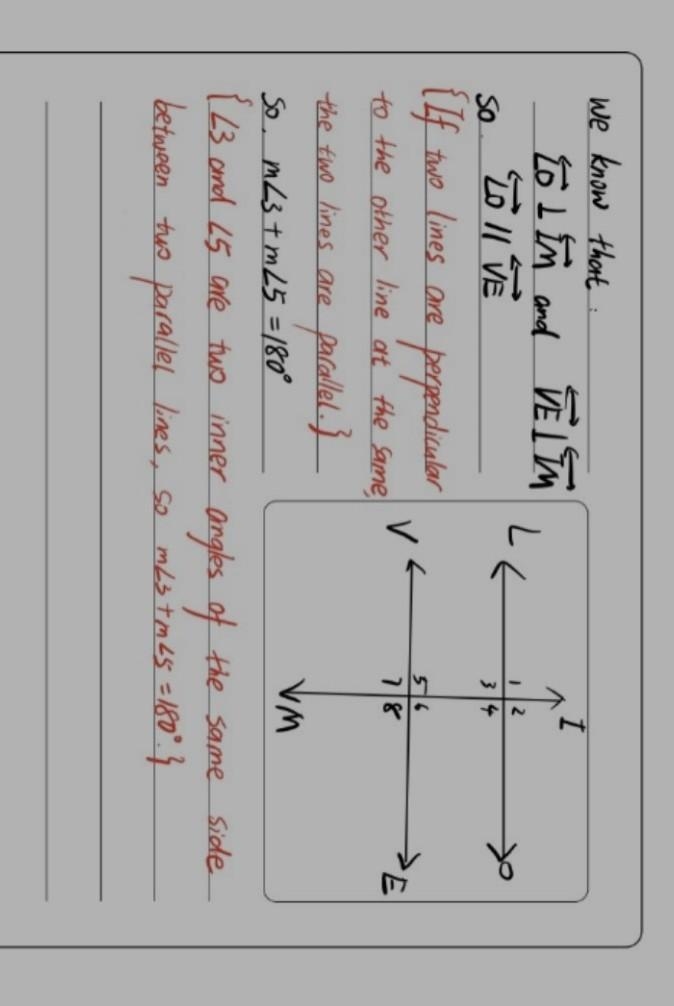 We know that :
LO ⊥ IM and VE ⊥ IM
So
LO // VE
{If two lines are perpendicular
to the other line at the same,
the two lines are parallel.}
So, m∠3 + m∠5 = 180°
{∠3 and ∠5 are two inner angles of the same side
between two parallel lines, so m∠3 + m∠5 = 180°.}
I
L
O
1 2
3 4
V
E
5 6
7 8
M